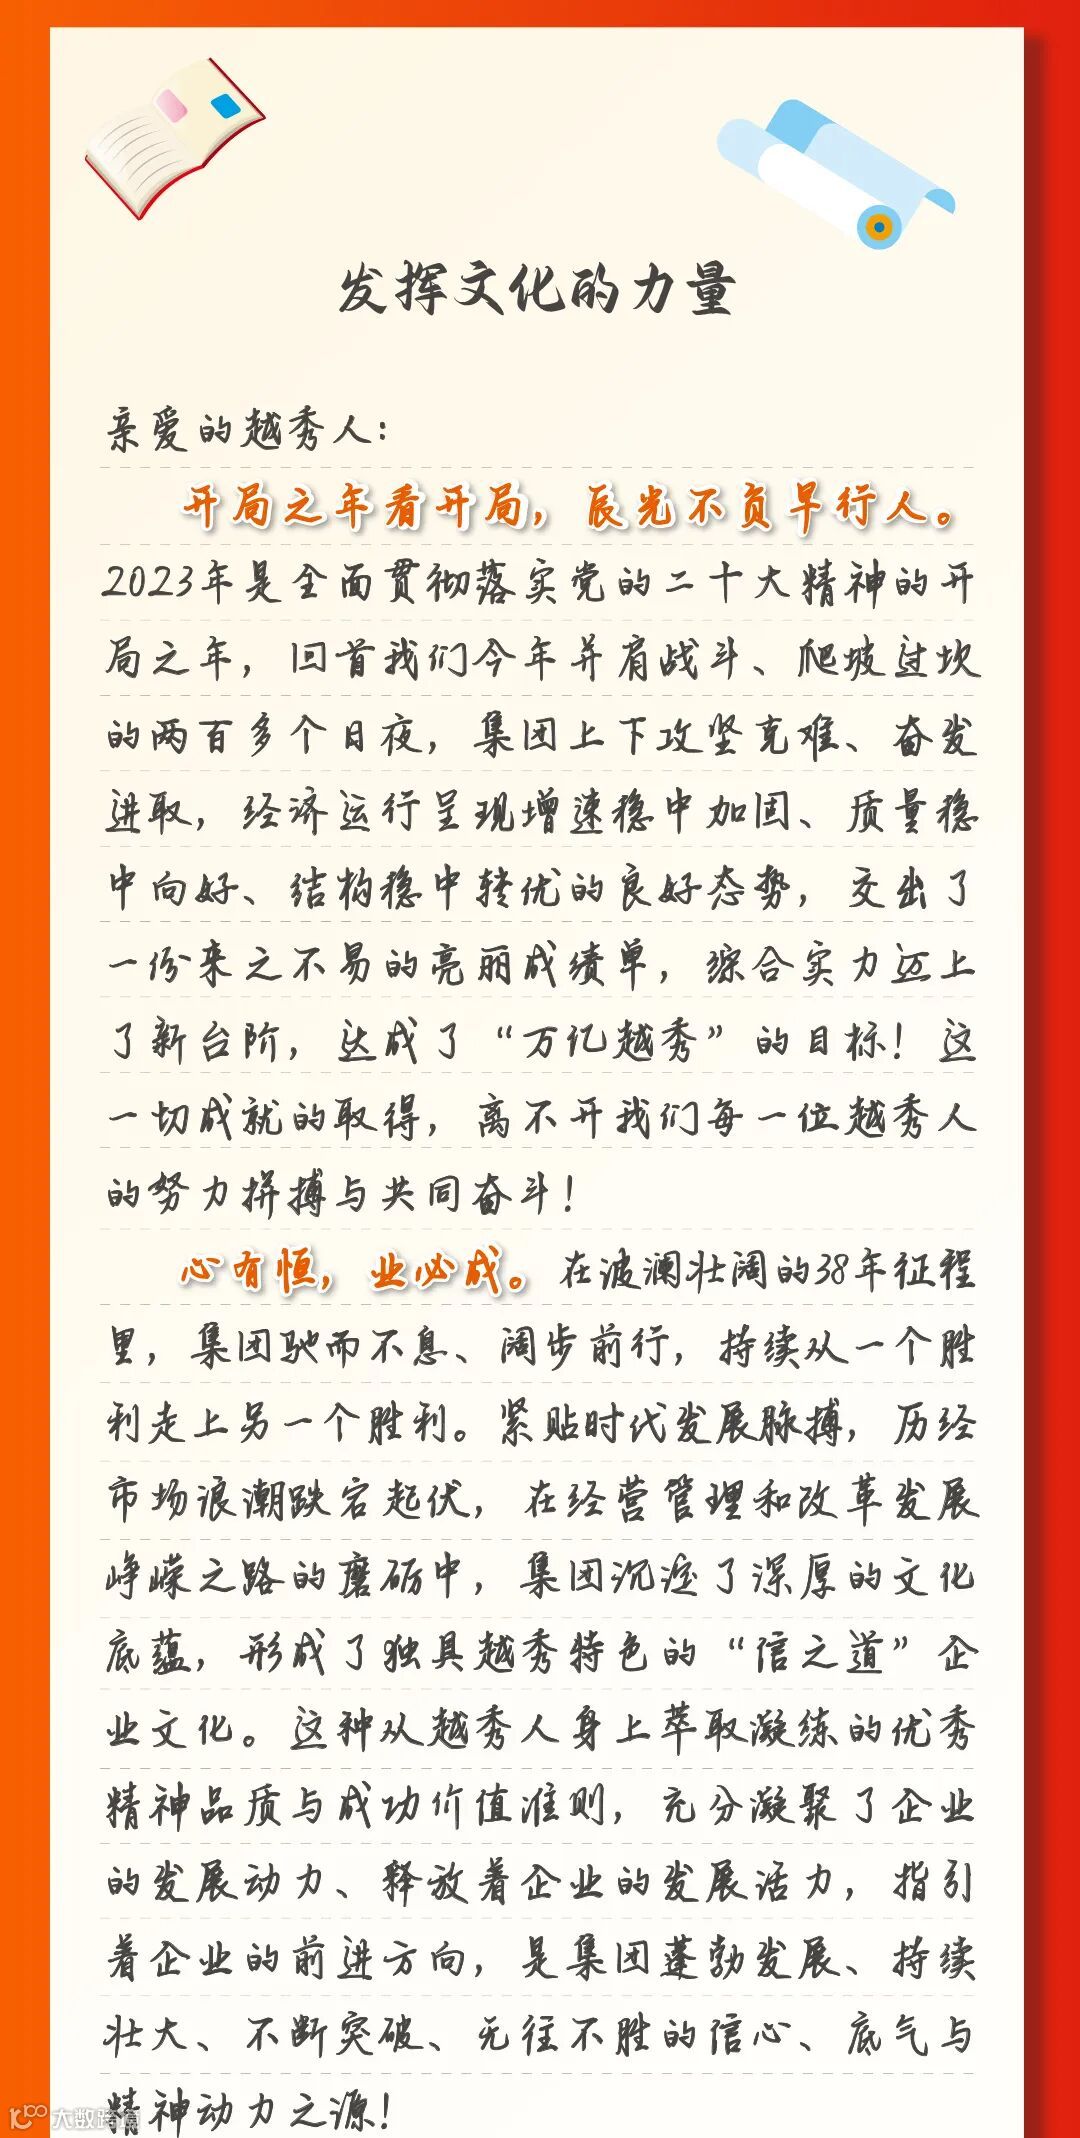 发挥文化的力量
亲爱的越秀人：
开局之年看开局，辰光不负早行人。
2023年是全面贯彻落实党的二十大精神的开
局之年，回首我们今年并肩战斗、爬坡过坎
的两百多个日夜，集团上下攻坚克难、奋发
进取，经济运行呈现增速稳中加固、质量稳
中向好、结构稳中转优的良好态势，交出了
一份来之不易的亮丽成绩单，综合实力迈上
了新台阶，达成了“万亿越秀”的目标！这
一切成就的取得，离不开我们每一位越秀人
的努力拼搏与共同奋斗！
心有恒，业必成。在波澜壮阔的38年征程
里，集团驰而不息、阔步前行，持续从一个胜
利走上另一个胜利。紧贴时代发展脉搏，历经
市场浪潮跌宕起伏，在经营管理和改革发展
峥嵘之路的磨砺中，集团沉淀了深厚的文化
底蕴，形成了独具越秀特色的“信之道”企
业文化。这种从越秀人身上萃取凝练的优秀
精神品质与成功价值准则，充分凝聚了企业
的发展动力、释放着企业的发展活力，指引
着企业的前进方向，是集团蓬勃发展、持续
壮大、不断突破、无往不胜的信心、底气与
精神动力之源！
大数跨境